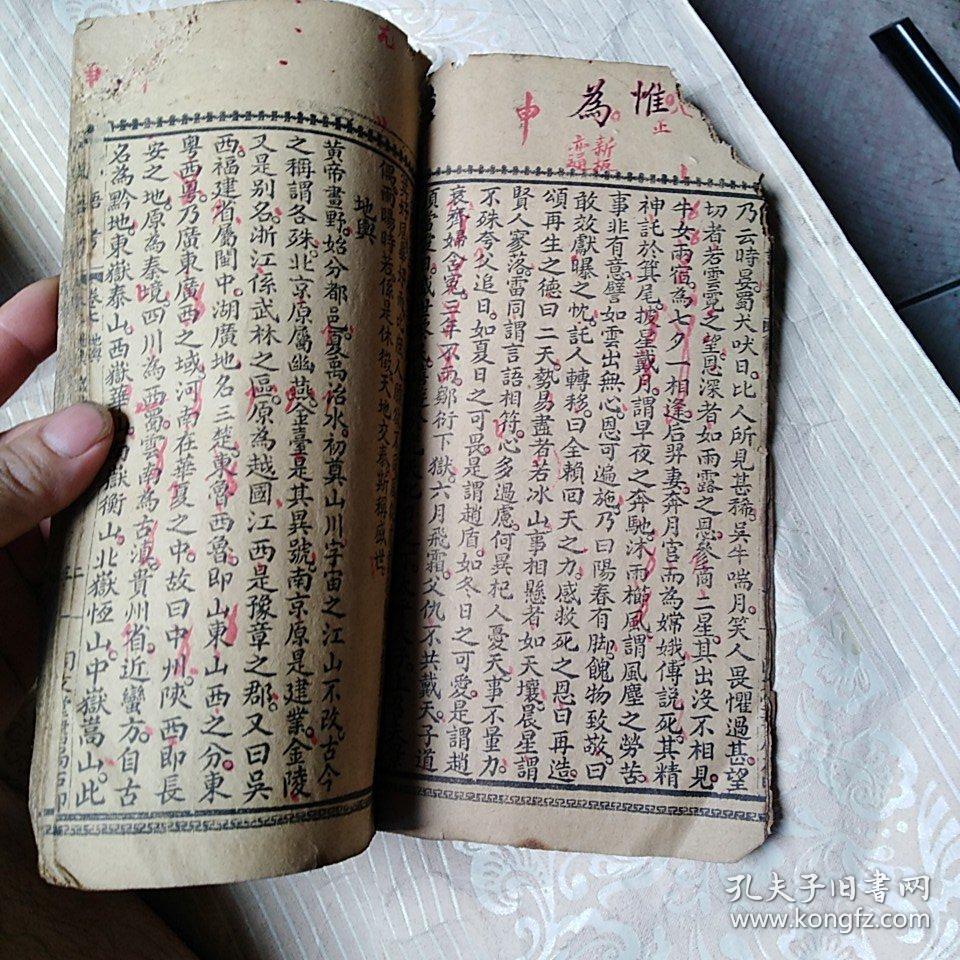 惟
為
正
新
申
乃云時晏蜀犬吠日比人所見甚稀吳牛喘月笑人畏懼過甚望
切者若雲霓之望恩深者如雨露之恩參商二星其出沒不相見
牛女兩宿為七夕相逢后羿妻奔月宮而為嫦娥傅說死其精
神託於箕尾披星戴月謂早夜之奔馳沐雨櫛風謂風塵之勞苦
事非有意譬如雲出無心恩可遍施乃曰陽春有脚餽物致敬曰
敢效獻曝之忱託人轉移曰全賴回天之力感救死之恩曰再造
頌再生之德曰二天勢易盡者若冰山事相懸者如天壤晨星謂
賢人寥落雷同謂言語相符心多過慮何異杞人憂天事不量力
不殊夸父追日如夏日之可畏是謂趙盾如冬日之可愛是謂趙
衰齊婦含冤三年不雨鄒衍下獄六月飛霜父仇不共戴天子道
偶雨暘時若係是休徵天地交泰斯稱盛世
地輿
黃帝畫野始分都邑夏禹治水初奠山川宇宙之江山不改古今
之稱謂各殊北京原屬幽燕金臺是其異號南京原是建業金陵
又是別名浙江係武林之區原為越國江西是豫章之郡又曰吳
西福建省屬閩中湖廣地名三楚東魯西魯即山東山西之分東
粵西粵乃廣東廣西之域河南在華夏之中故曰中州陝西即長
安之地原為秦境四川為西蜀雲南為古滇貴州省近蠻方自古
名為黔地東嶽泰山西嶽華嶽衡山北嶽恆山中嶽嵩山此
申
孔夫子旧书网
www.kongfz.com